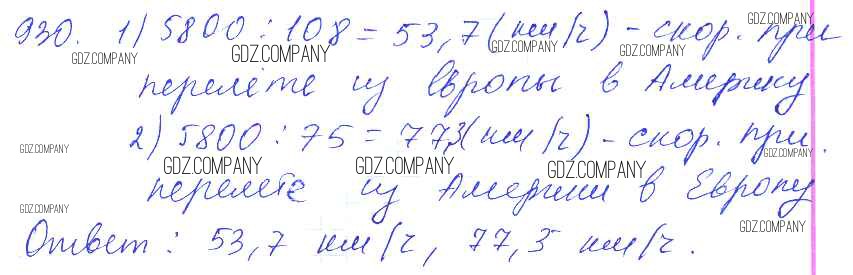 930. 1) 5800 : 108 = 53,7 (км/ч) - скор. при
GDZ.COMPANY GDZ.COMPANY GDZ.COMPANY GDZ.COMPANY GDZ.COMPANY
перелёте из Европы в Америку
2) 5800 : 75 = 77,3 (км/ч) - скор. при.
GDZ.COMPANY GDZ.COMPANY GDZ.COMPANY GDZ.COMPANY GDZ.COMPANY
перелёте из Америки в Европу
GDZ.COMPANY GDZ.COMPANY
Ответ: 53,7 км/ч, 77,3 км/ч.